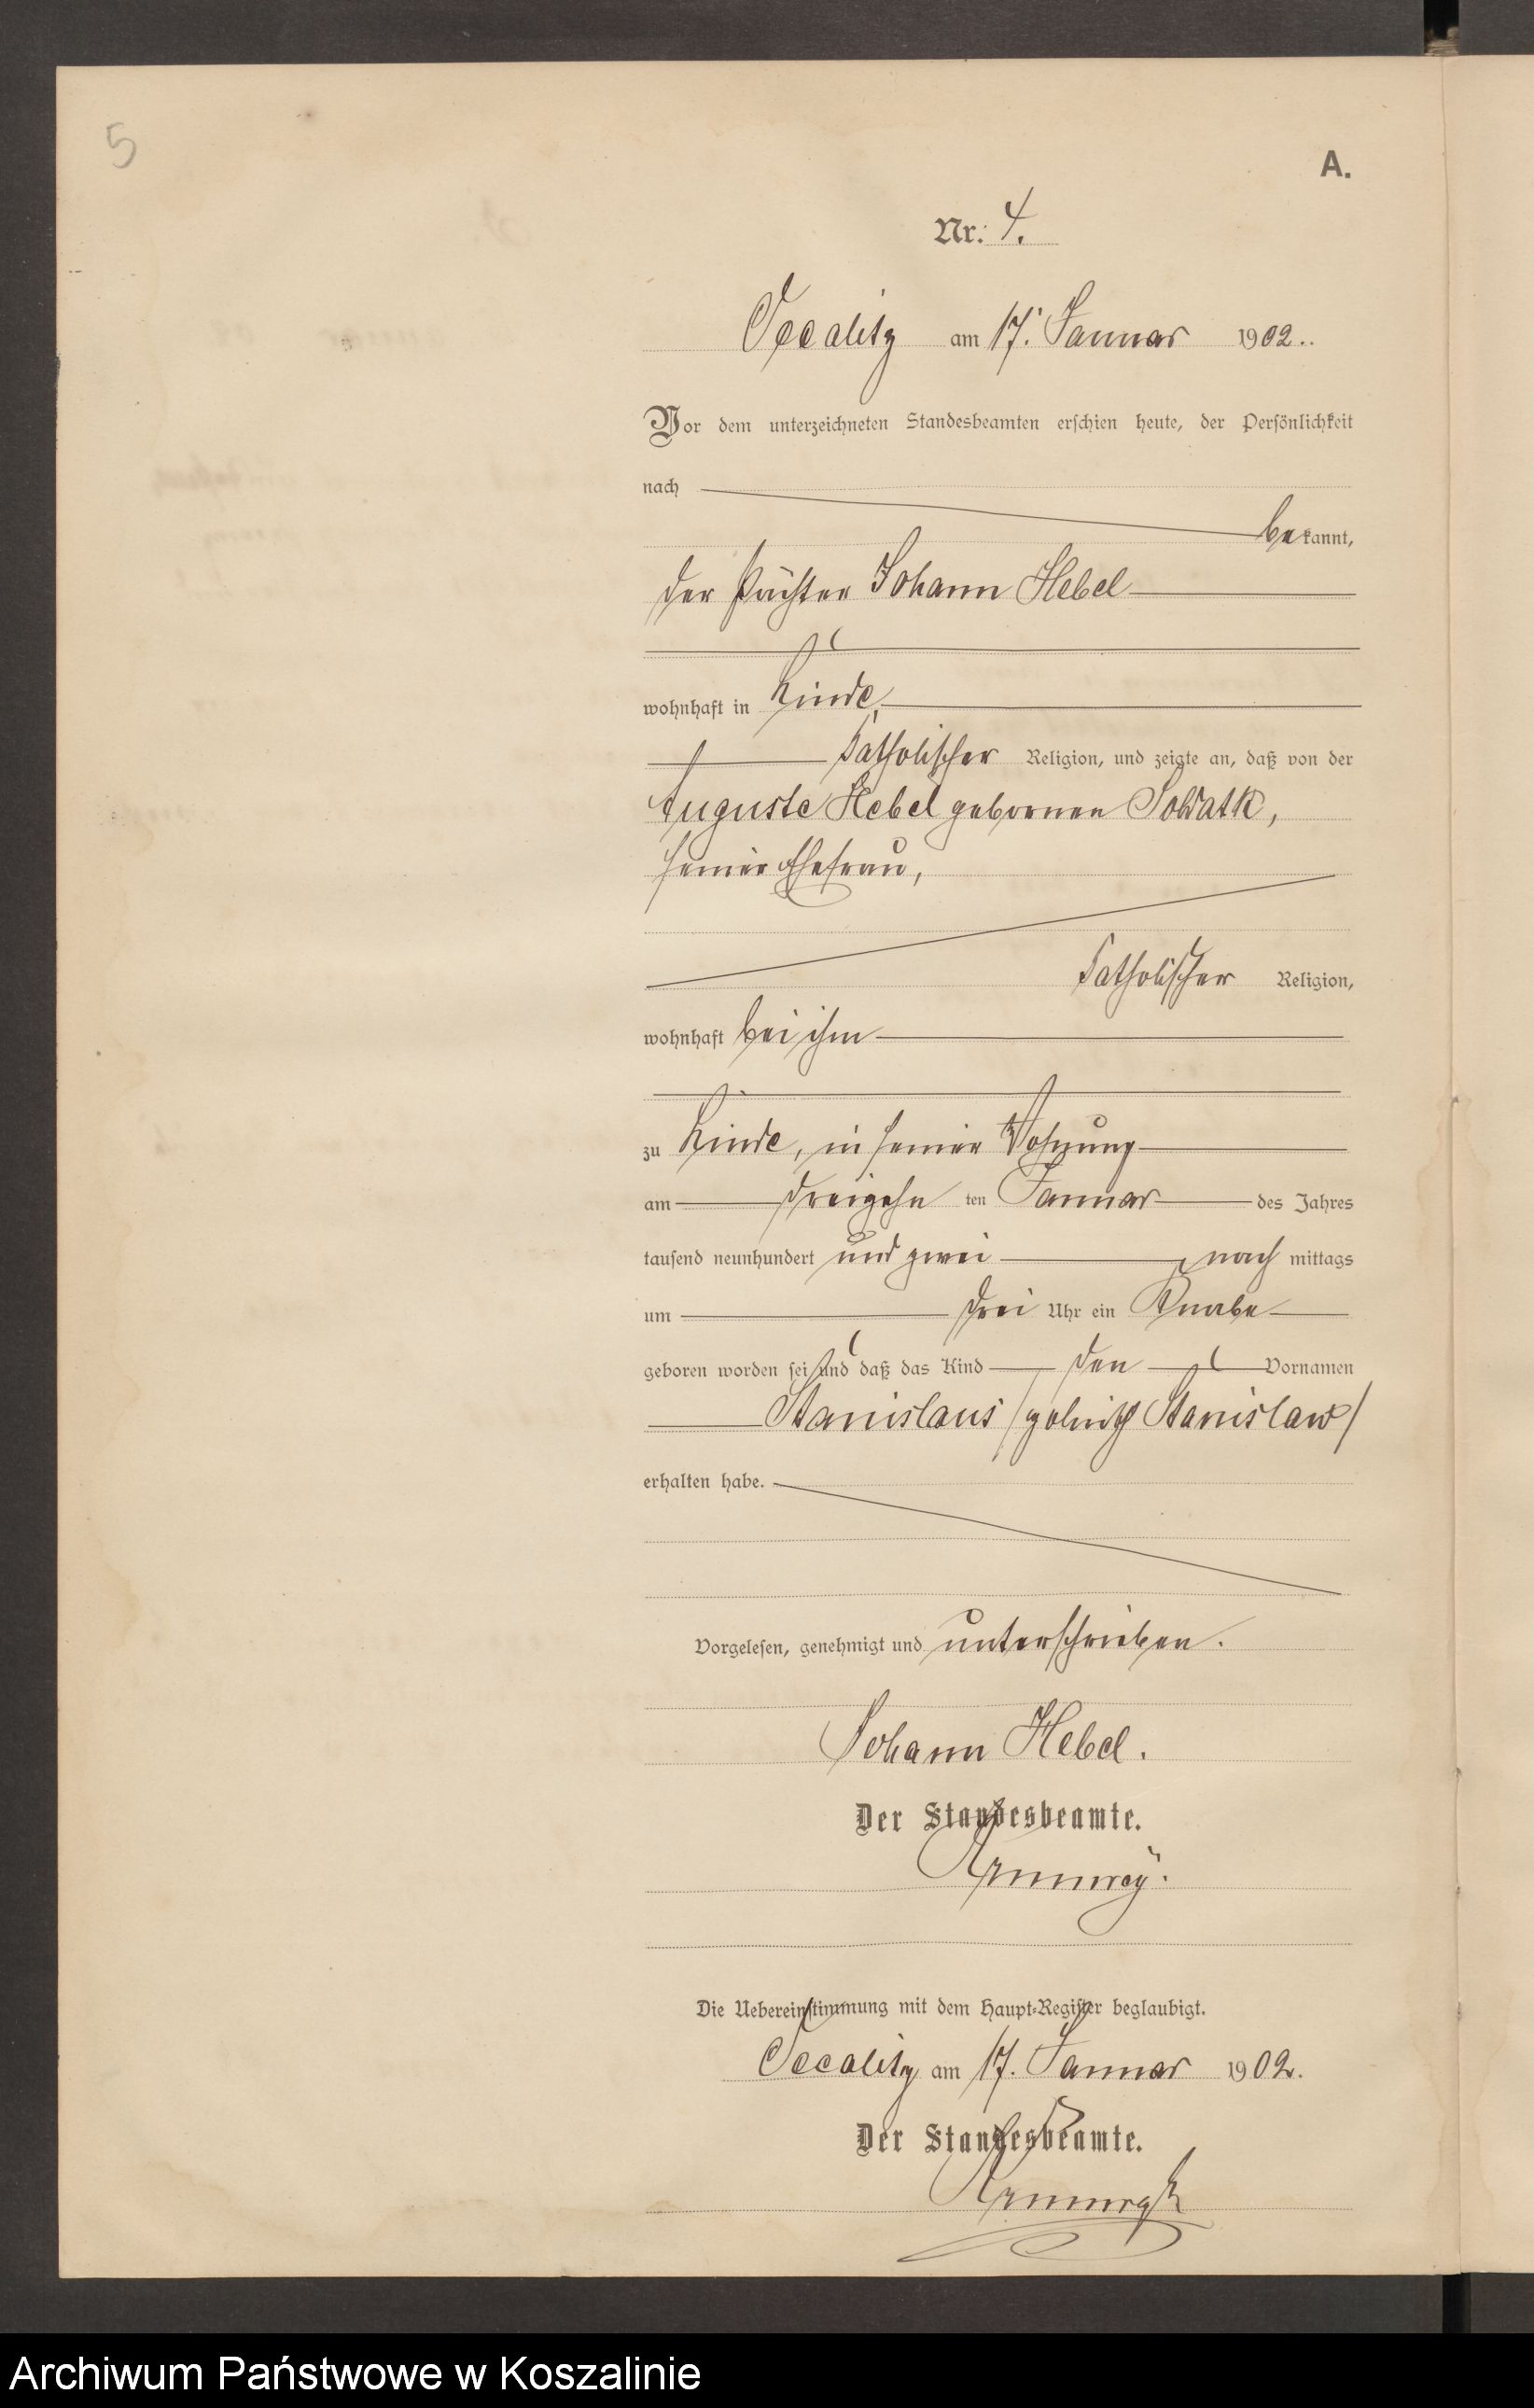 5
A.
Nr. 4.
Occalitz am 17. Januar 1902.
Vor dem unterzeichneten Standesbeamten erschien heute, der Persönlichkeit
nach
bekannt,
der Pächter Johann Hebel
wohnhaft in Linde,
katholischer Religion, und zeigte an, daß von der
Auguste Hebel geborenen Soldatk,
seiner Ehefrau,
katholischer Religion,
wohnhaft bei ihm
zu Linde, in seiner Wohnung
am dreizehn ten Januar des Jahres
tausend neunhundert und zwei nach mittags
um drei Uhr ein Knabe
geboren worden sei und daß das Kind den Vornamen
Stanislaus /polnisch Stanislaw/
erhalten habe.
Vorgelesen, genehmigt und unterschrieben.
Johann Hebel.
Der Standesbeamte.
Die Uebereinstimmung mit dem Haupt-Register beglaubigt.
Occalitz am 17. Januar 1902.
Der Standesbeamte.
Archiwum Państwowe w Koszalinie